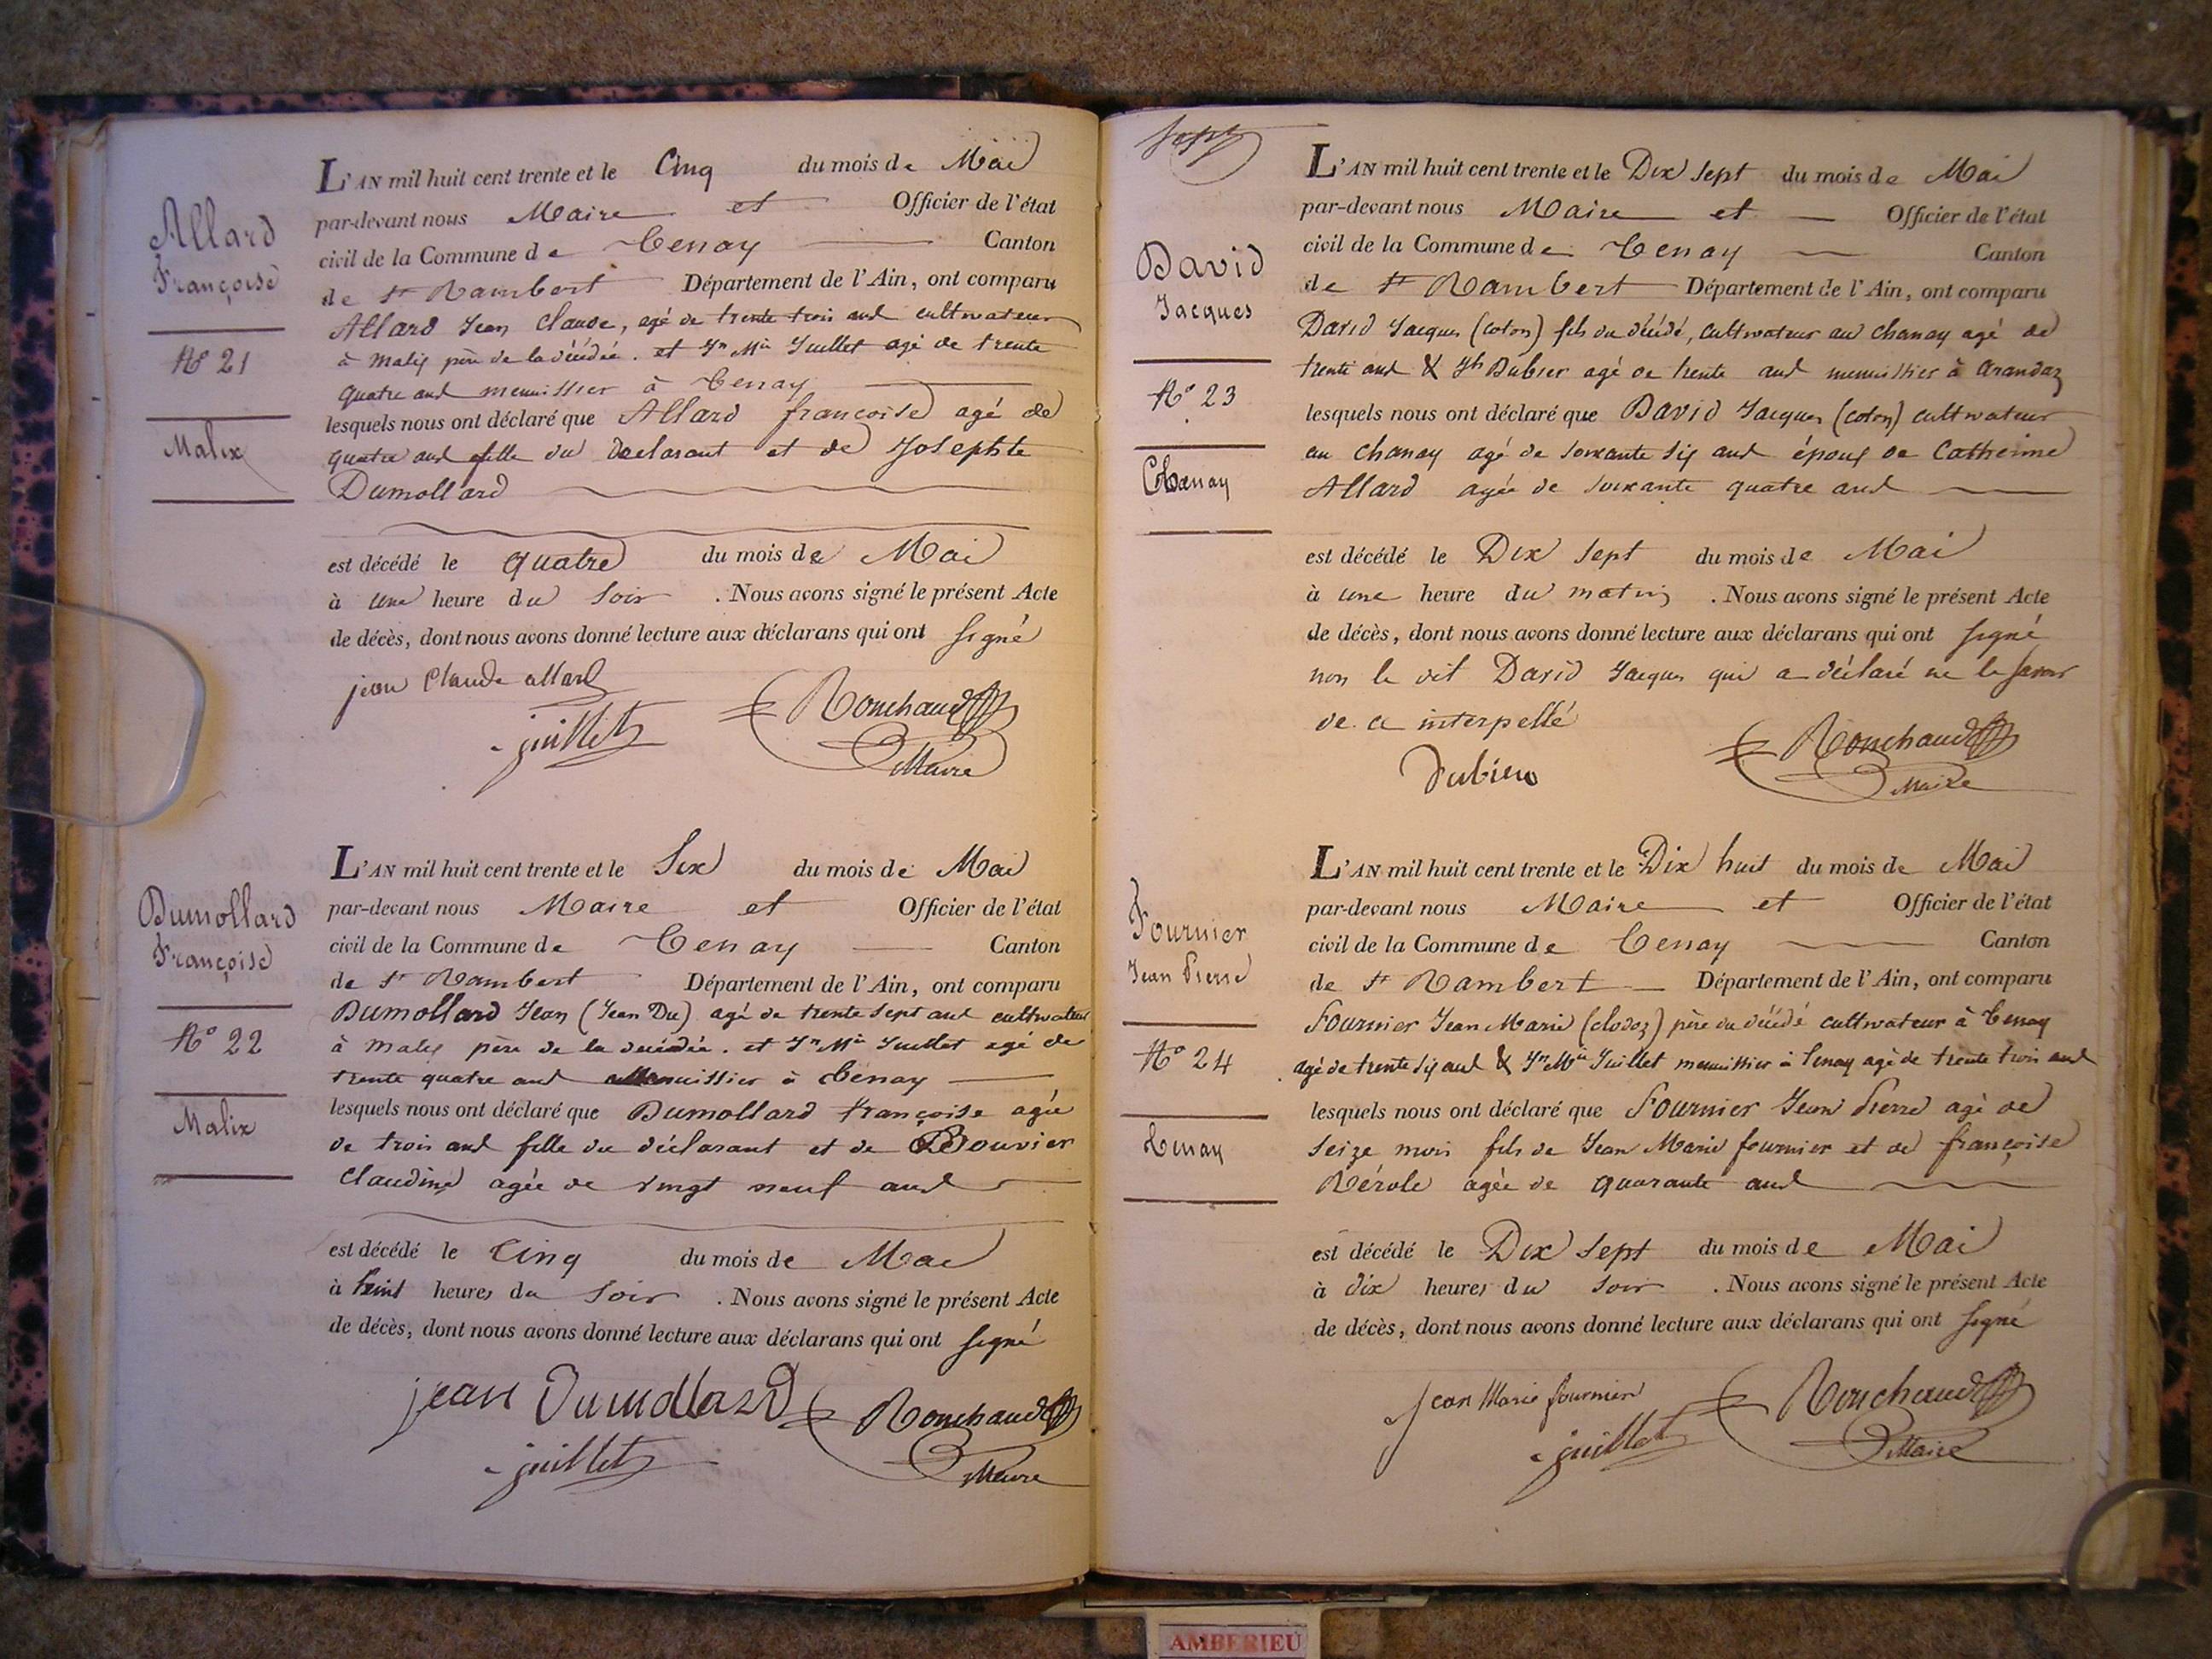 Allard
Françoise
N° 21
Malix
L'AN mil huit cent trente et le Cinq du mois de Mai
par-devant nous Maire et Officier de l'état
civil de la Commune de Tenay Canton
de St Rambert Département de l'Ain, ont comparu
Allard Jean Claude, agé de trente trois ans cultivateur
à Malix père de la décédée. et Jn Mie Juillet agé de trente
quatre ans menuissier à Tenay
lesquels nous ont déclaré que Allard françoise agé de
quatre ans fille du Declarant et de Josephte
Dumollard
est décédé le quatre du mois de Mai
à une heure du Soir . Nous avons signé le présent Acte
de décès, dont nous avons donné lecture aux déclarans qui ont Signé
jean Claude allard
juillet
Ronchaud
Maire
Dumollard
Françoise
N° 22
Malix
L'AN mil huit cent trente et le Six du mois de Mai
par-devant nous Maire et Officier de l'état
civil de la Commune de Tenay Canton
de St Rambert Département de l'Ain, ont comparu
Dumollard Jean (Jean Du) agé de trente sept ans cultivateur
à Malix père de la décédée. et Jn Mie Juillet agé de
trente quatre ans menuissier à Tenay
lesquels nous ont déclaré que Dumollard françoise agée
de trois ans fille du déclarant et de Bouvier
Claudine agée de vingt neuf ans
est décédé le Cinq du mois de Mai
à heures du Soir . Nous avons signé le présent Acte
de décès, dont nous avons donné lecture aux déclarans qui ont Signé
jean Dumollard
juillet
Ronchaud
Maire
Sept
David
Jacques
N° 23
Chanay
L'AN mil huit cent trente et le Dix Sept du mois de Mai
par-devant nous Maire et Officier de l'état
civil de la Commune de Tenay Canton
de St Rambert Département de l'Ain, ont comparu
David Jacques (coton) fils du décédé, cultivateur au Chanay agé de
trente ans & Jh Dubier agé de trente ans menuissier à arandaz
lesquels nous ont déclaré que David Jacques (coton) cultivateur
au Chanay agé de soixante six ans époux de Catherine
Allard agée de soixante quatre ans
est décédé le Dix Sept du mois de Mai
à une heure du matin . Nous avons signé le présent Acte
de décès, dont nous avons donné lecture aux déclarans qui ont Signé
non le dit David Jacques qui a déclaré ne le savoir
de ce interpellé
Ronchaud
Maire
Fournier
Jean Pierre
N° 24
Tenay
L'AN mil huit cent trente et le Dix huit du mois de Mai
par-devant nous Maire et Officier de l'état
civil de la Commune de Tenay Canton
de St Rambert Département de l'Ain, ont comparu
Fournier Jean Marie (clodoz) père du décédé cultivateur à Tenay
agé de trente six ans & Jn Mie Juillet menuissier à Tenay agé de trente trois ans
lesquels nous ont déclaré que Fournier Jean Pierre agé de
seize mois fils de Jean Marie fournier et de françoise
Rérole agée de quarante ans
est décédé le Dix Sept du mois de Mai
à dix heures du Soir . Nous avons signé le présent Acte
de décès, dont nous avons donné lecture aux déclarans qui ont Signé
Jean Marie fournier
juillet
Ronchaud
Maire
AMBERIEU